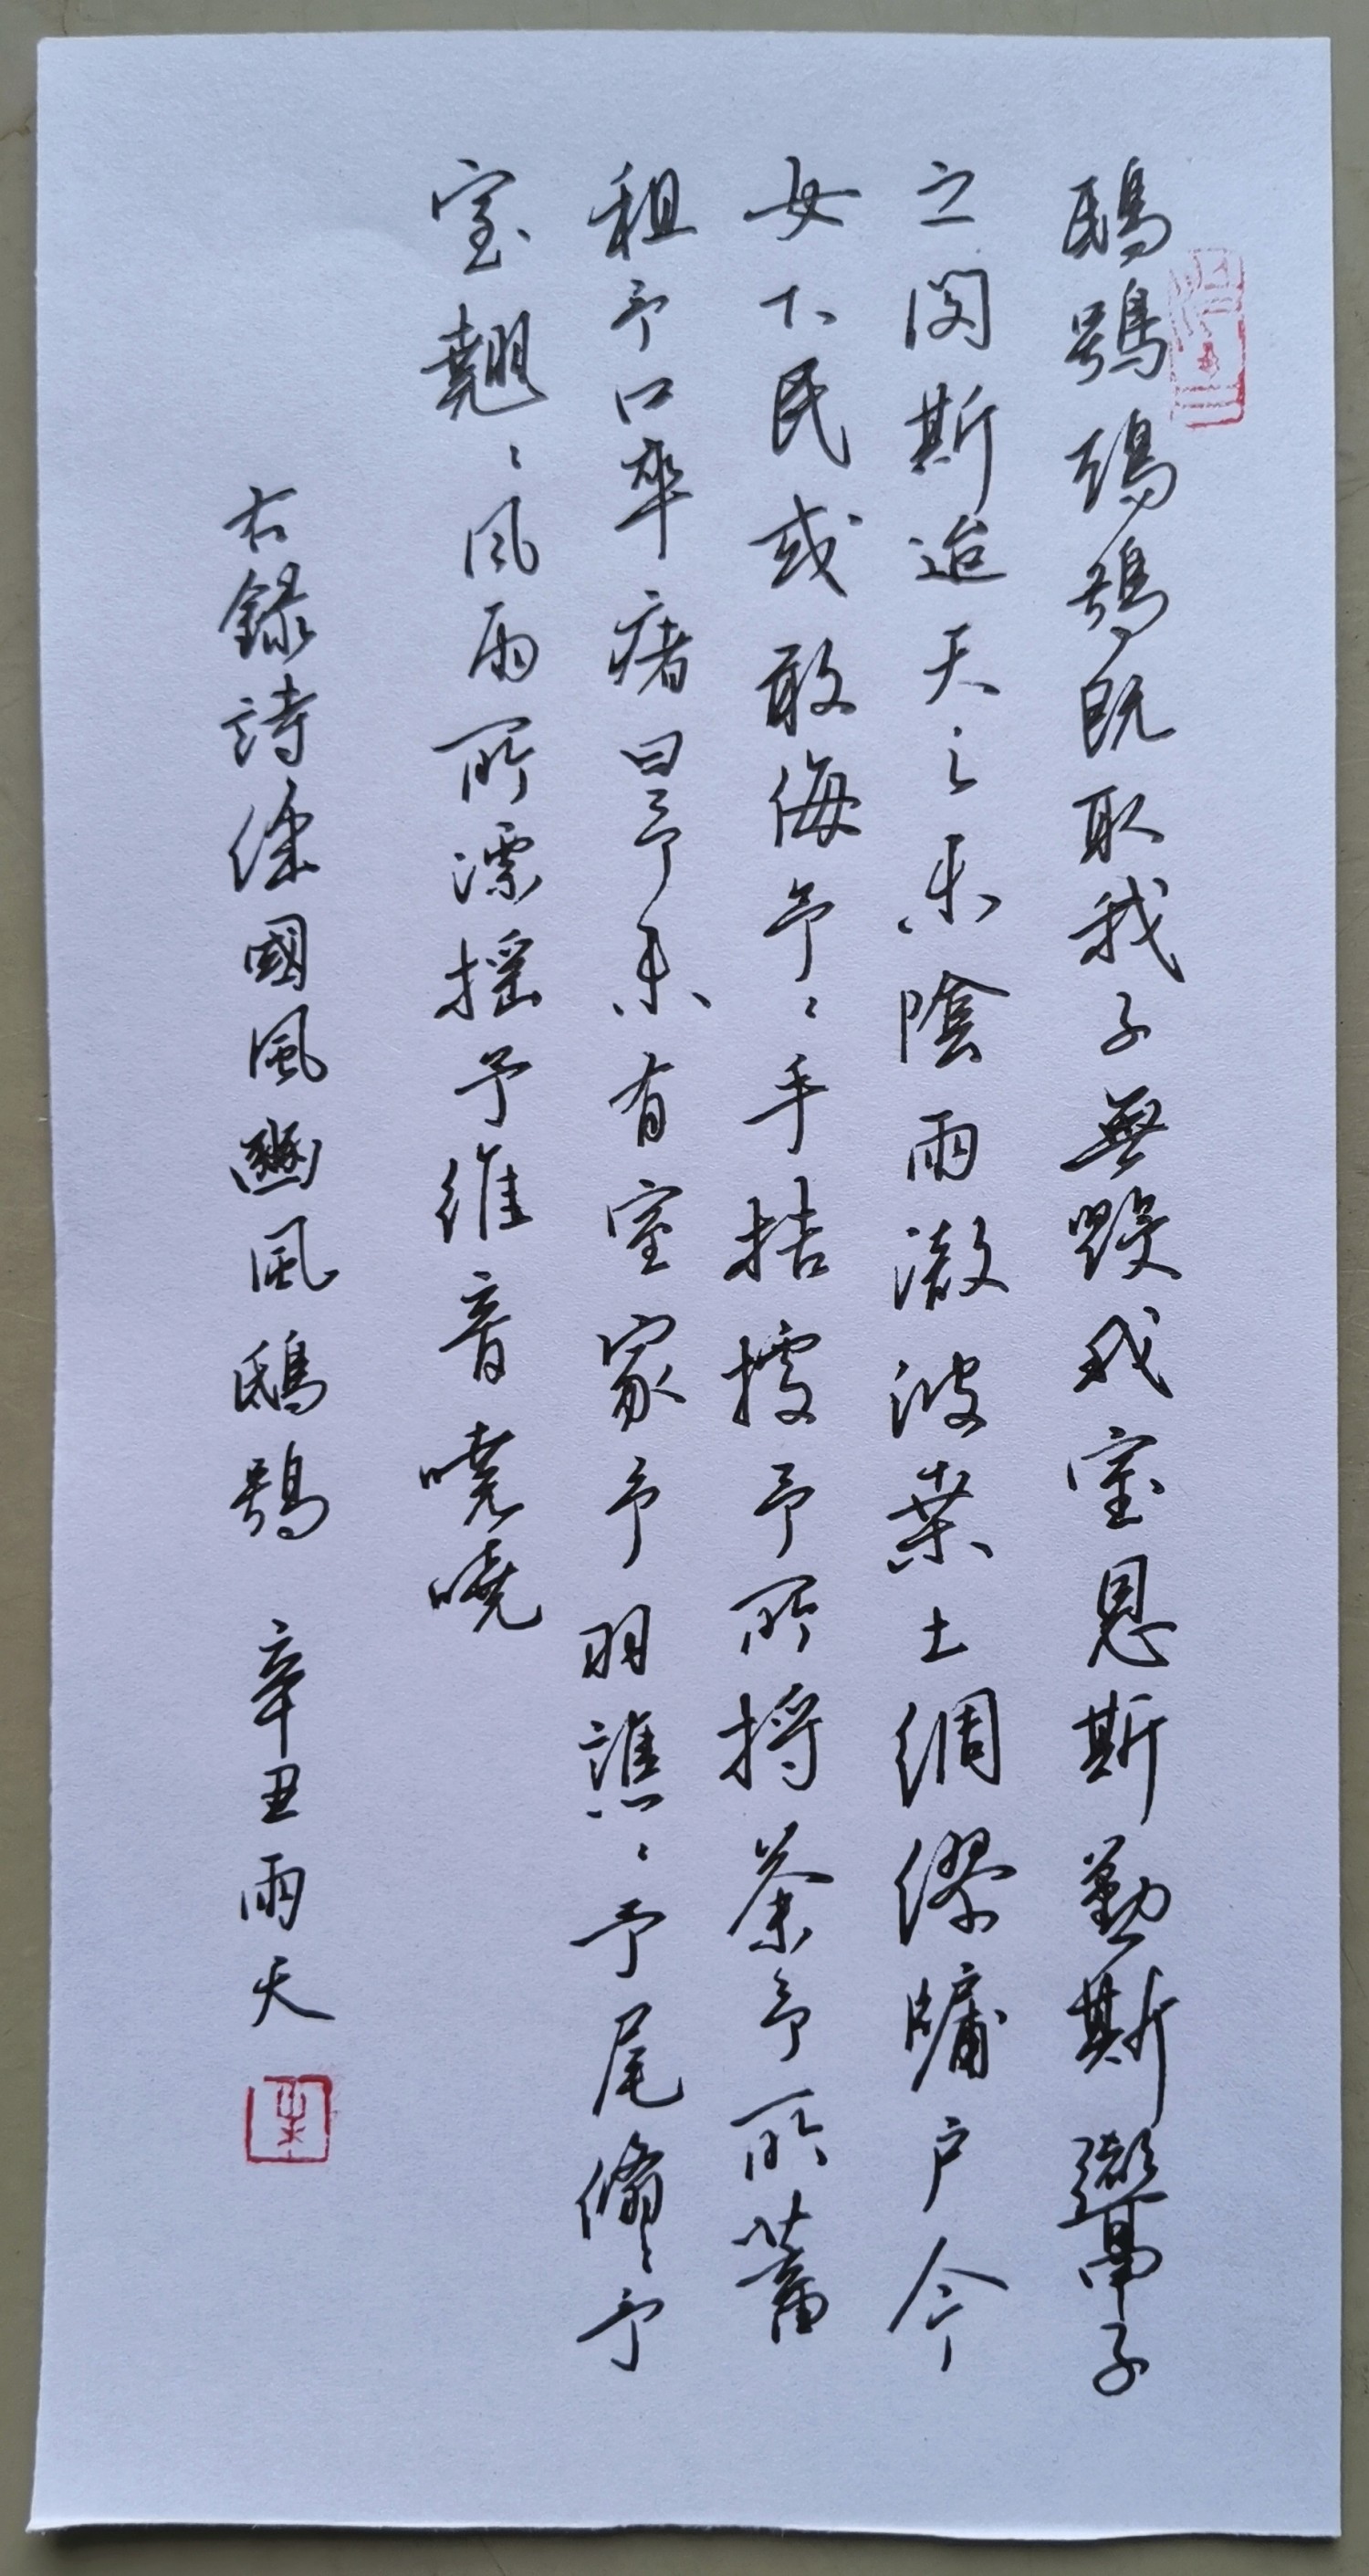 鴟鴞鴟鴞既取我子無毀我室恩斯勤斯鬻子
之閔斯迨天之未陰雨澈彼桑土綢繆牖户今
女下民或敢侮予予手拮據予所捋荼予所蓄
租予口卒瘏曰予未有室家予羽譙譙予尾翛翛予
室翹翹風雨所漂摇予維音嘵嘵
右録詩經國風豳風鴟鴞 辛丑雨天